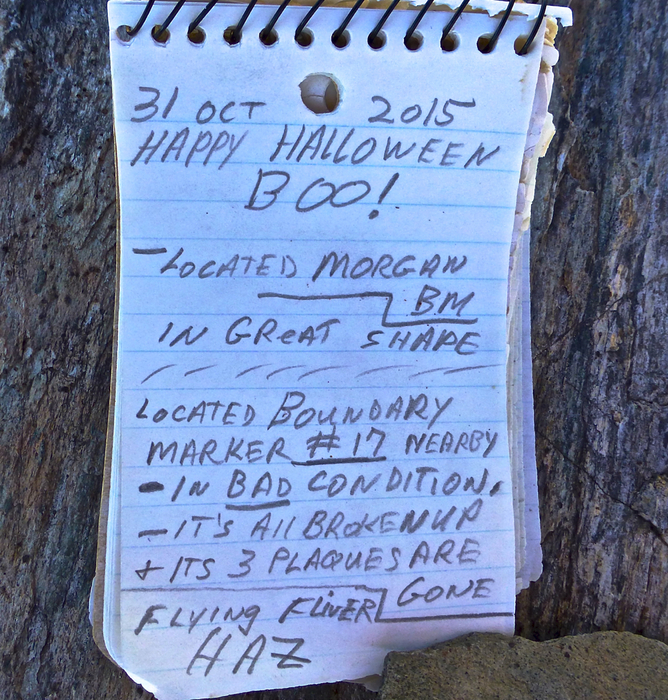 31 OCT 2015
HAPPY HALLOWEEN
BOO!
- LOCATED MORGAN
BM
IN GREAT SHAPE
LOCATED BOUNDARY
MARKER #17 NEARBY
- IN BAD CONDITION.
- IT'S All BROKEN UP
+ ITS 3 PLAQUES ARE
GONE
FLYING FLIVER
HAZ